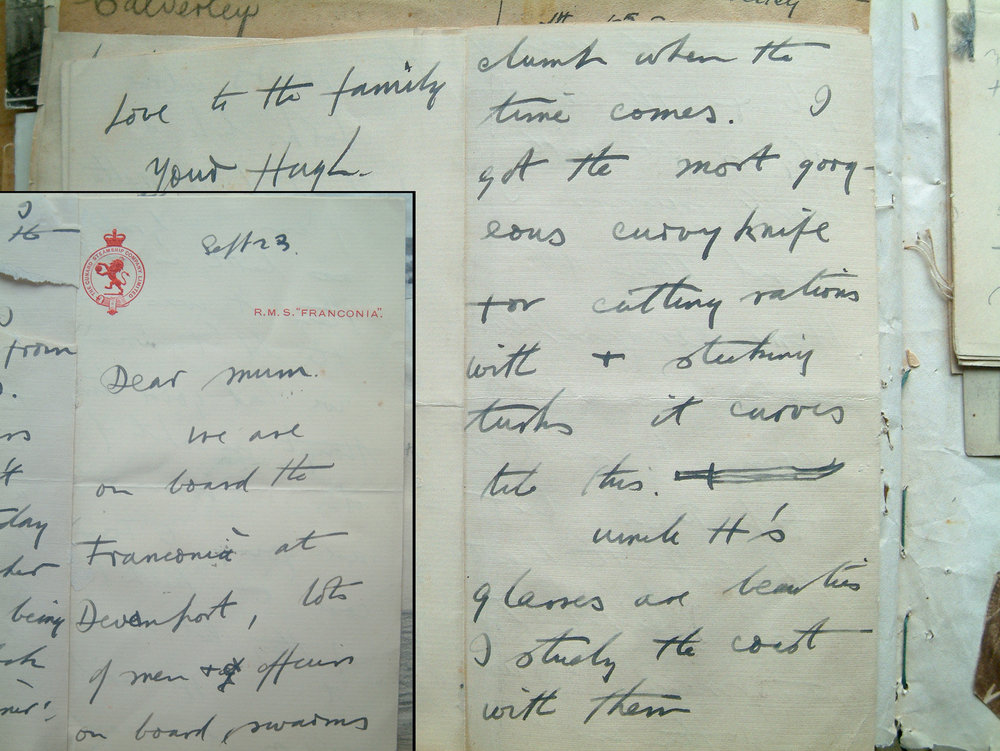 Calverley
Love to the family
Your Hugh.
clumb when the
time comes. I
got the most gorg-
eous curvy knife
for cutting rations
with + sticking
turks it curves
like this.
Uncle H's
glasses are beauties
I study the coast
with them
THE CUNARD STEAMSHIP COMPANY LIMITED
Sept 23.
R.M.S. "FRANCONIA".
Dear Mum.
we are
on board the
Franconia at
Devenport, lots
of men + officers
on board, swarms
from
day
being